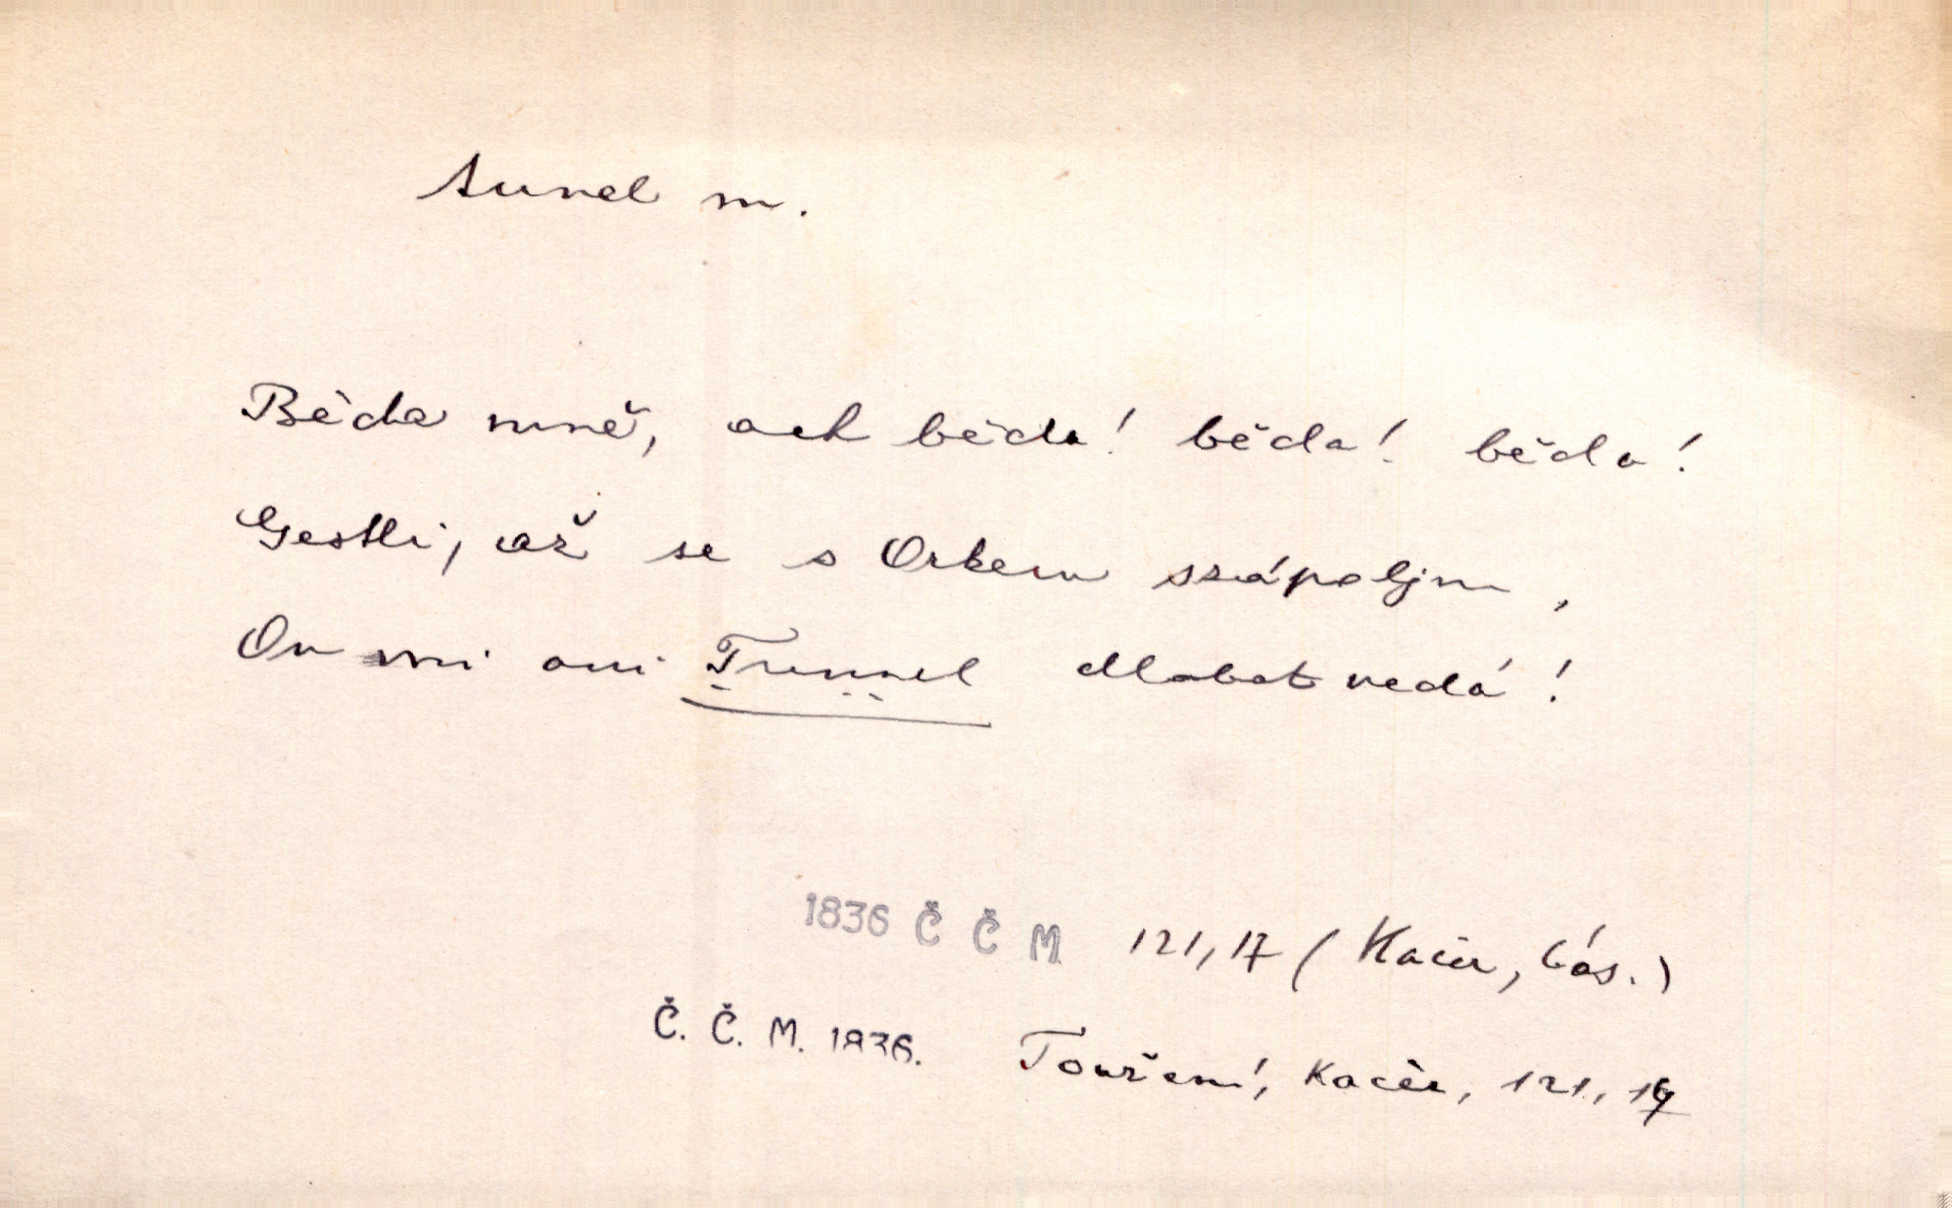 tunel m.
Běda mně, ach běda! běda! běda!
Gestli, až se s Orkem szápoljm,
On mi ani Tunnel dlabat nedá!
1836 Č Č M 121, 17 (Kacér, bás.)
Č. Č. M. 1836. Toužení, Kacér, 121, 17